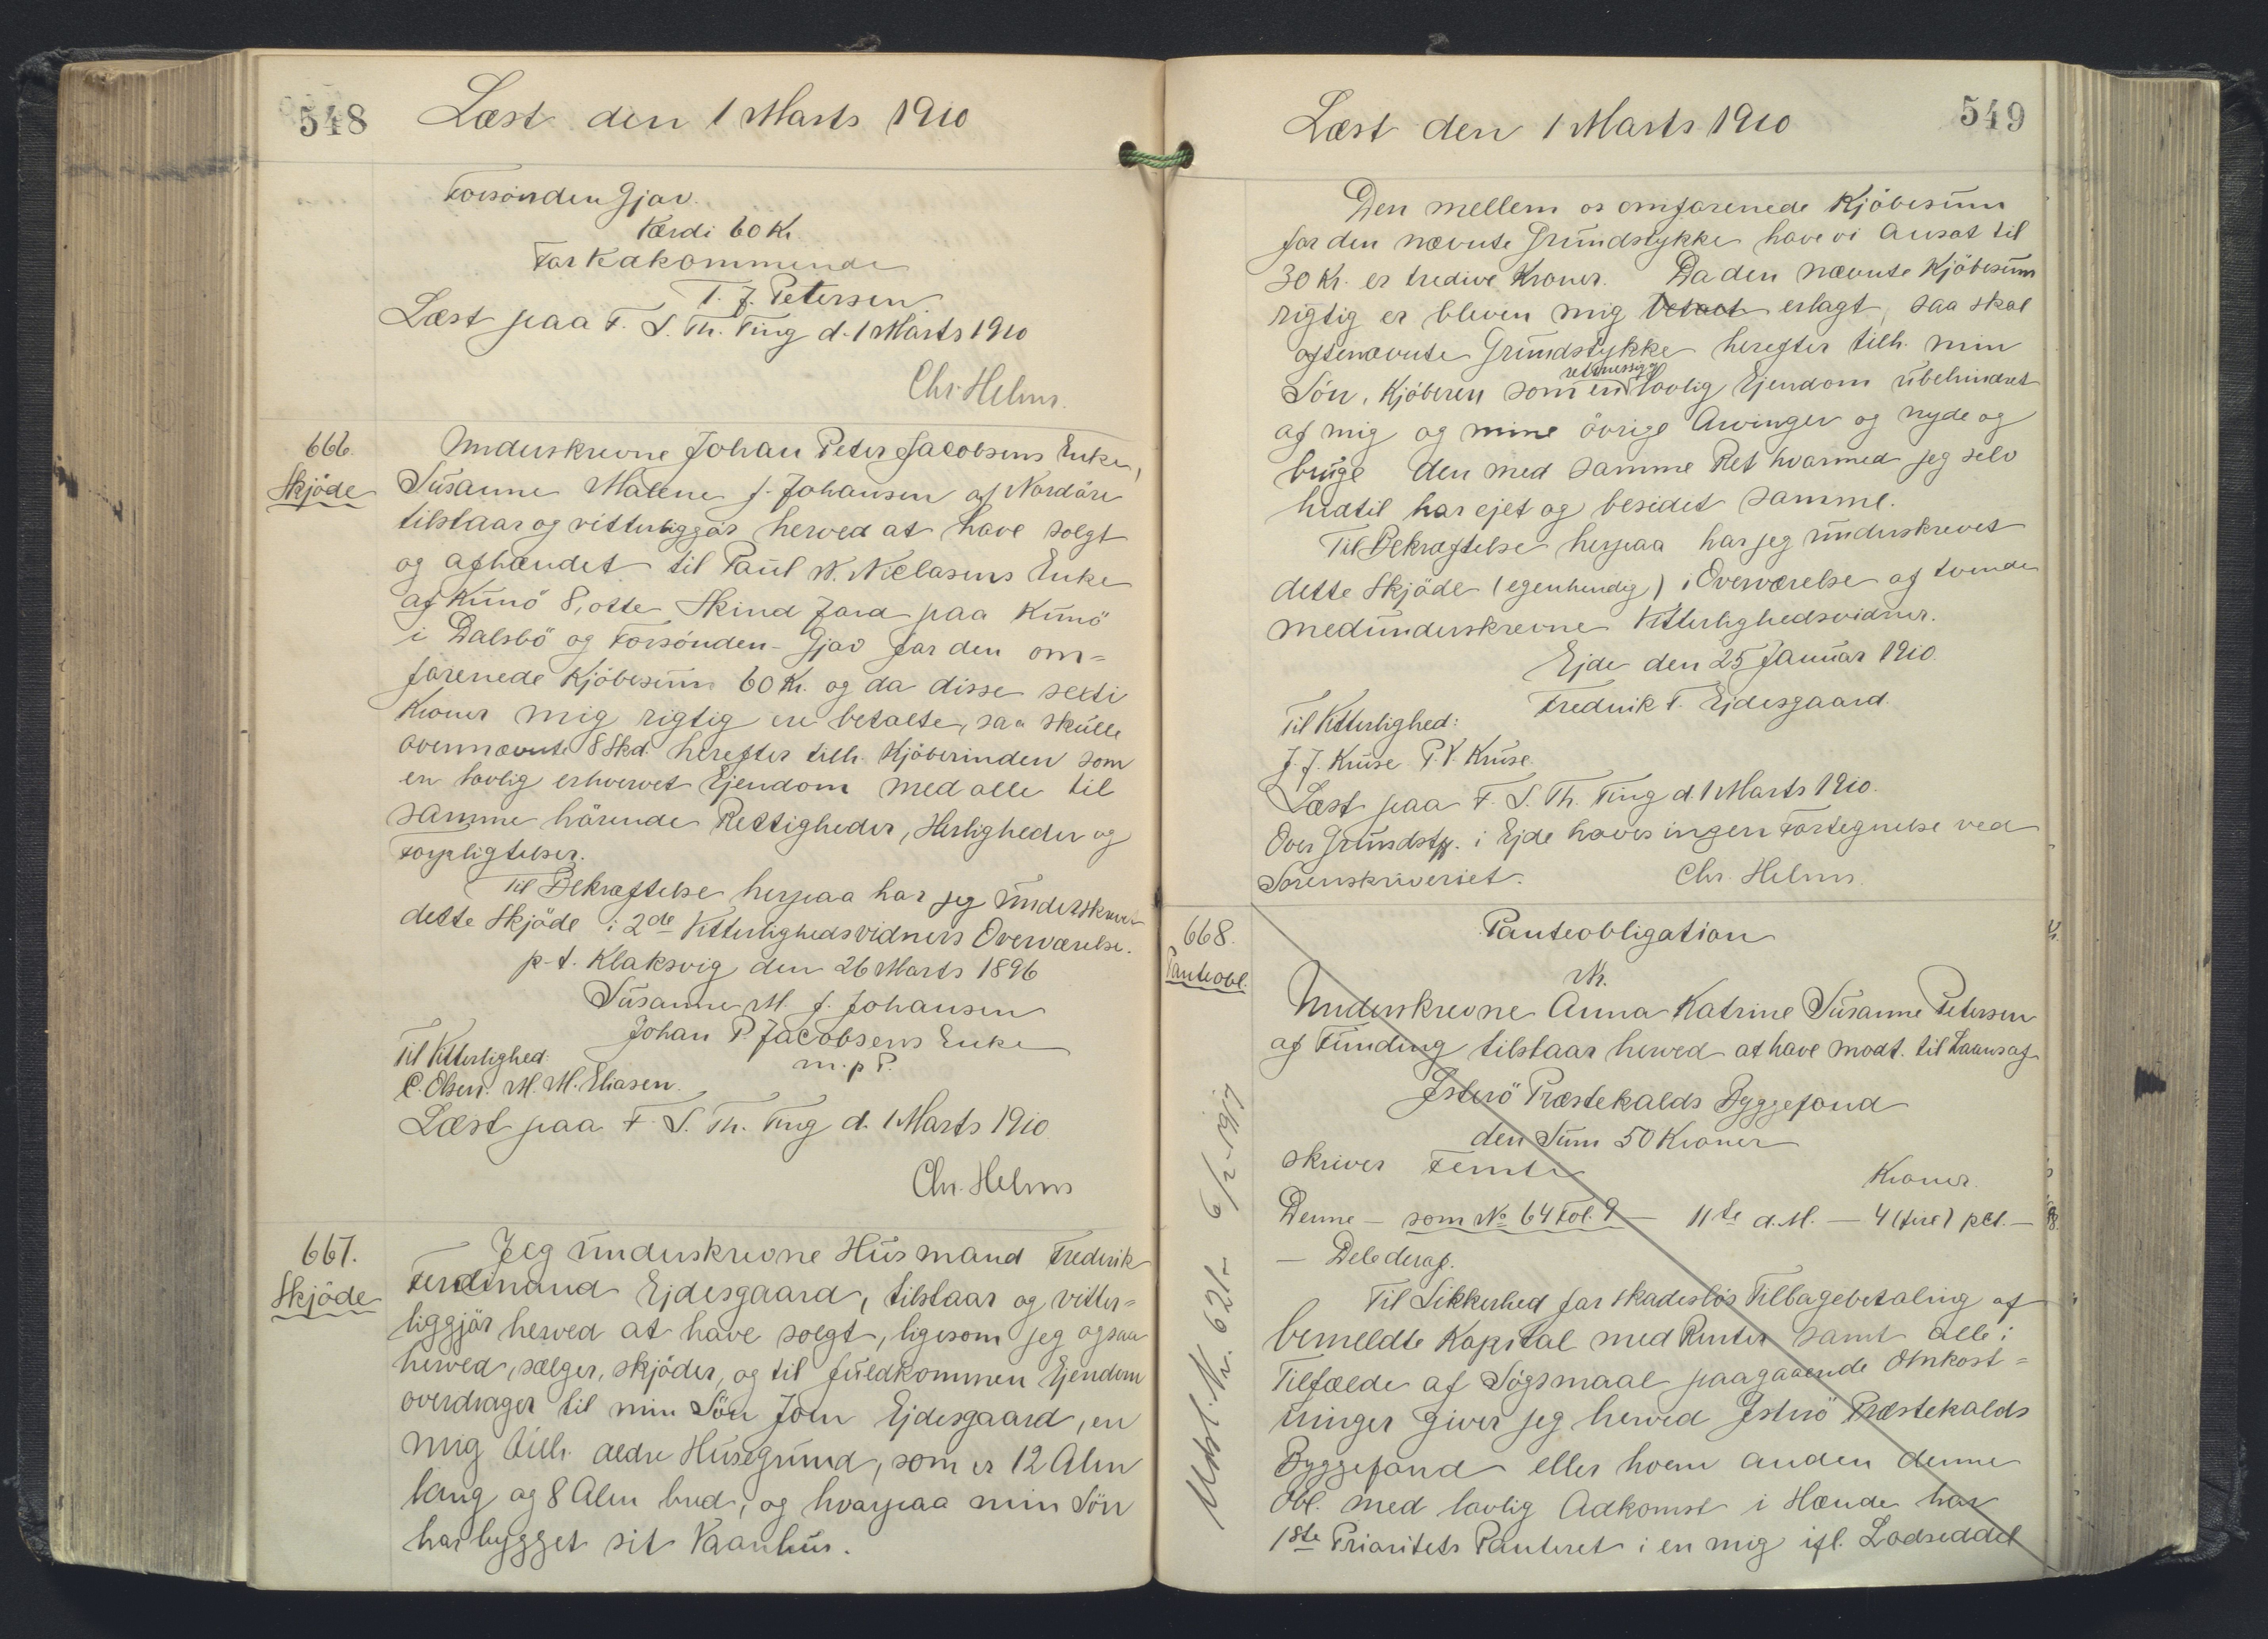 548
Læst den 1 Marts 1910
Forsönden Gjov.
Værdi 60 Kr.
For Vedkommende
T. J. Petersen
Læst paa F. S. Th. Ting d. 1 Marts 1910
Chr. Helms.
666.
Skjöde
Underskrevne Johan Peter Jacobsens Enke,
Susanne Malene J. Johansen af Nordöre
tilstaar og vitterliggör herved at have solgt
og afhændet til Paul N. Niclasens Enke
af Kunö 8, otte Skind Jord paa Kunö
i Dalsbö og Forsönden-Gjov for den om=
forenede Kjöbesum 60 Kr. og da disse sexti
Kroner mig rigtig ere betalte, saa skulle
ovennævnte 8 Skd. herefter tilh. Kjöberinden som
en lovlig erhvervet Ejendom med alle til
samme hörende Rettigheder, Herligheder og
Forpligtelser.
Til Bekræftelse herpaa har jeg underskrevet
dette Skjöde i 2de Vitterlighedsvidners Overværelse.
p.t. Klaksvig den 26 Marts 1896
Susanne M. J. Johansen
Johan P. Jacobsens Enke
m. p. P.
Til Vitterlighed:
C. Olsen. M. M. Eliasen.
Læst paa F. S. Th. Ting d. 1 Marts 1910
Chr. Helms
667.
Skjöde
Jeg underskrevne Husmand Frederik
Ferdinand Ejdesgaard, tilstaar og vitter=
liggjör herved at have solgt, ligesom jeg ogsaa
herved, sælger, skjöder, og til fuldkommen Ejendom
overdrager til min Sön Joen Ejdesgaard, en
mig tilh. ældre Husegrund, som er 12 Alen
lang og 8 Alen bred, og hvorpaa min Sön
har bygget sit Vaanhus.
549
Læst den 1 Marts 1910
Den mellem os omforenede Kjöbesum
for den nævnte Grundstykke have vi Ansat til
30 Kr. er tredive Kroner. Da den nævnte Kjöbesum
rigtig er bleven mig betalt erlagt, saa skal
oftenævnte Grundstykke herefter tilh. min
Sön, Kjöberen som en retmessig lovlig Ejendom ubehindret
af mig og mine övrige Arvinger og nyde og
bruge den med samme Ret hvormed jeg selv
hidtil har ejet og besidet samme.
Til Bekræftelse herpaa har jeg underskrevet
dette Skjöde (egenhendig) i Overværelse af tvende
medunderskrevne Vitterlighedsvidner.
Ejde den 25 Januar 1910.
Frederik F. Ejdesgaard.
Til Vitterlighed:
J. J. Kruse P. V. Kruse.
Læst paa F. S. Th. Ting d. 1 Marts 1910.
Over Grundst. i Ejde haves ingen Fortegnelse ved
Sorenskriveriet. Chr. Helms.
668.
Panteobl.
Panteobligation
Nr.
Underskrevne Anna Katrine Susanne Petersen
af Funding tilstaar herved at have modt. til Laans af
Österö Præstekalds Byggefond
den Sum 50 Kroner
skriver Femti Kroner.
Denne — som No 64 Fol. 9 — 11te d. M. — 4 (fire) pCt. —
— Dele deraf.
Til Sikkerhed for skadeslös Tilbagebetaling af
bemeldte Kapital med Renter samt alle i
Tilfælde af Sögsmaal paagaaende Omkost=
ninger giver jeg herved Österö Præstekalds
Byggefond eller hvem anden denne
Obl. med lovlig Adkomst i Hænde har
1ste Prioritets Panteret i en mig ifl. Lodseddel
Udsl. Nr. 621- 6/2-1917